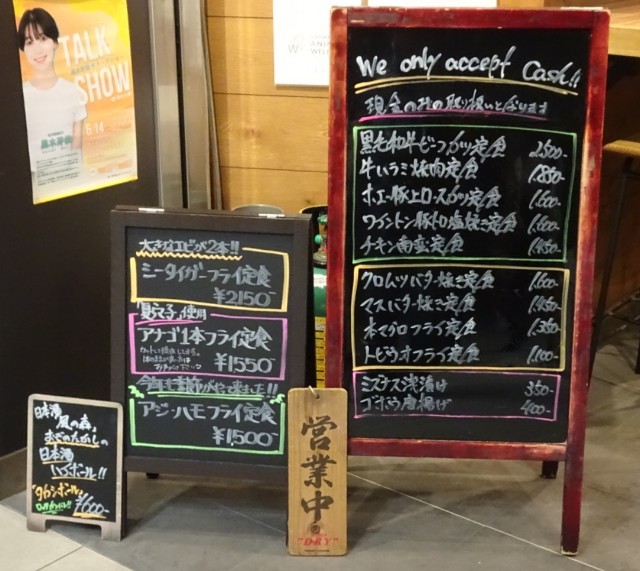 TALK
SHOW
6.14
We only accept Cash!!
現金のみの取り扱いとなります
黒毛和牛ビーフカツ定食 2,500-
牛ハラミ焼肉定食 1,850-
ホエー豚上ロースカツ定食 1,600-
ワシントン豚トロ塩焼き定食 1,600-
チキン南蛮定食 1,450-
クロムツバター焼き定食 1,600-
マスバター焼き定食 1,450-
本マグロフライ定食 1,350-
トビウオフライ定食 1,100-
ミズナス浅漬け 350-
ゴボウ唐揚げ 400-
大きなエビが2本!!
シータイガーフライ定食
¥2150-
「夏穴子」使用
アナゴ1本フライ定食
¥1550-
今年も季節がやって来ました!!
アジ・ハモフライ定食
¥1500-
日本酒
風の森、
みむろたかしの
日本酒
ハイボール!!
「タカシボール」
¥600-
営業中
の
"DRY"